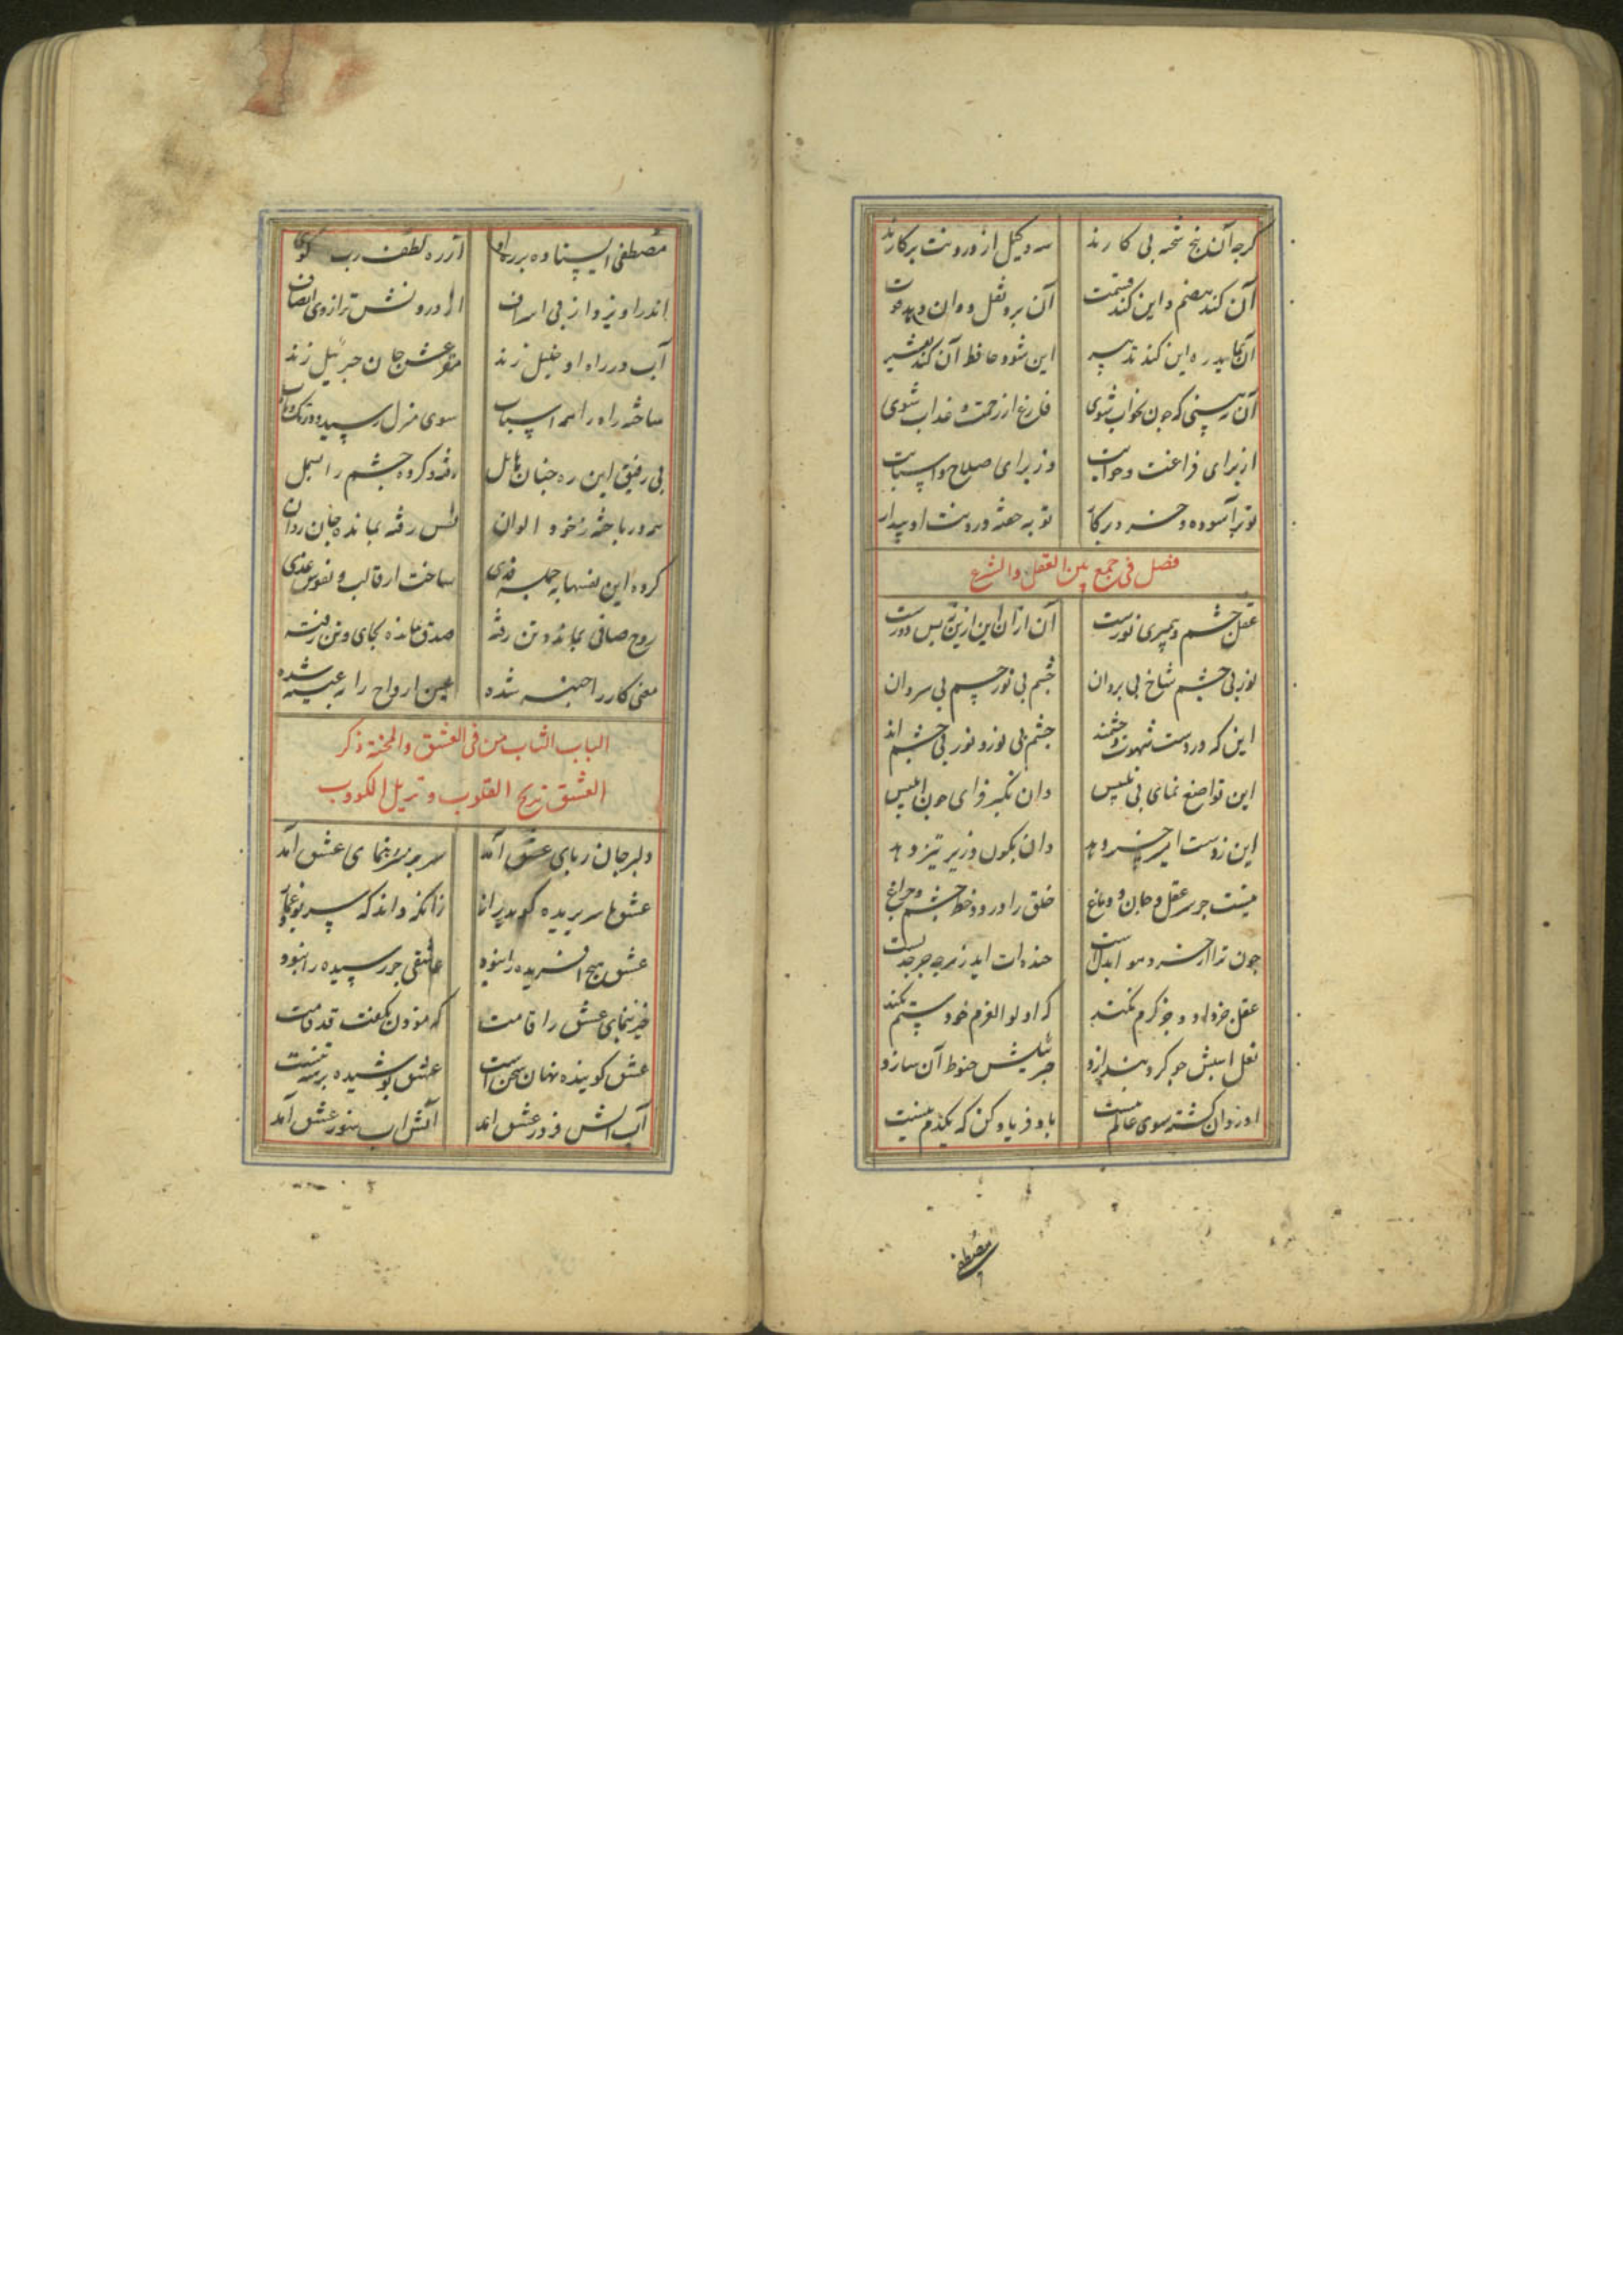 کرچه آن پنج شحنه بی کارند سه وکیل از درونت برکارند
آن کند هضم و این کند قسمت آن برد ثقل و وان دهد قوت
آن نماید ره این کند تدبیر این شود حافظ آن کند تغییر
آن نه بینی که چون بخواب شوی فارغ از زحمت و عذاب شوی
از برای فراغت و خوابت وز برای صلاح و اسبابت
تو برآسوده و خرد در کار تو به خفته درونت او بیدار
فصل فی جمع بین العقل والشرع
عقل چشم و پیمبری نورست آن ازان این ازین نه بس دورست
نور بی چشم شاخ بی بر دان چشم بی نور جسم بی سر دان
این که در دست شهوت و خشمند چشم بی نور و نور بی چشم اند
این تواضع نمای بی تلبیس وان تکبر فزای چون ابلیس
این زدست امیر خسرو هد وان نکون وزیر تیز دهد
نیست جز سر عقل و جان و دماغ خلق را در دو خط چشم و چراغ
چون ترا از خرد هو ابدلست خنده ات اید ز هرچه جز جدلست
عقل جز داد و جز کرم نکند که اولو العزم خود ستم نکند
نعل اسبش چو کرد بندازد جبرئیلش حنوط آن سازد
او روان کشته سوی عالم نیست باد و فریاد کن که یکدم نیست
مصطفی
مصطفی ایستاده بر ره او از ره لطف رب کوی
اندر اویزد از بی اسراف از درونش ترازوی انصاف
آب در راه او خلیل زند مقرعش جان جبرئیل زند
ساخته راه را همه اسباب سوی منزل رسیده
بی رفیق این ره چنان هایل رفته و کرده چشم را مسمل
سر در باخته ز خود الوان نفس رفته بمانده جان روان
کرده این نفسها به جمله فدی ساخت از قالب و نفوس غدی
روح صافی بمانده و تن رفته صدق مانده بجای و من رفته
معنی کار را خبر شده عین ارواح را عیبه شده
الباب الثامن فی العشق والمحبة ذکر
العشق تریح القلوب و تزیل الکروب
دلبر جان ربای عشق آمد سر بر سر نمای عشق آمد
عشق با سر بریده کوید راز زانکه داند که سر بود غماز
عشق هیچ افریده را نبود عاشقی جز رسیده را نبود
خیز بنمای عشق را قامت که مؤذن بکفت قد قامت
عشق کوینده نهان سخن است عشق پوشیده برهنه تنست
آب اتش فروز عشق امد آتش اب سوز عشق آمد